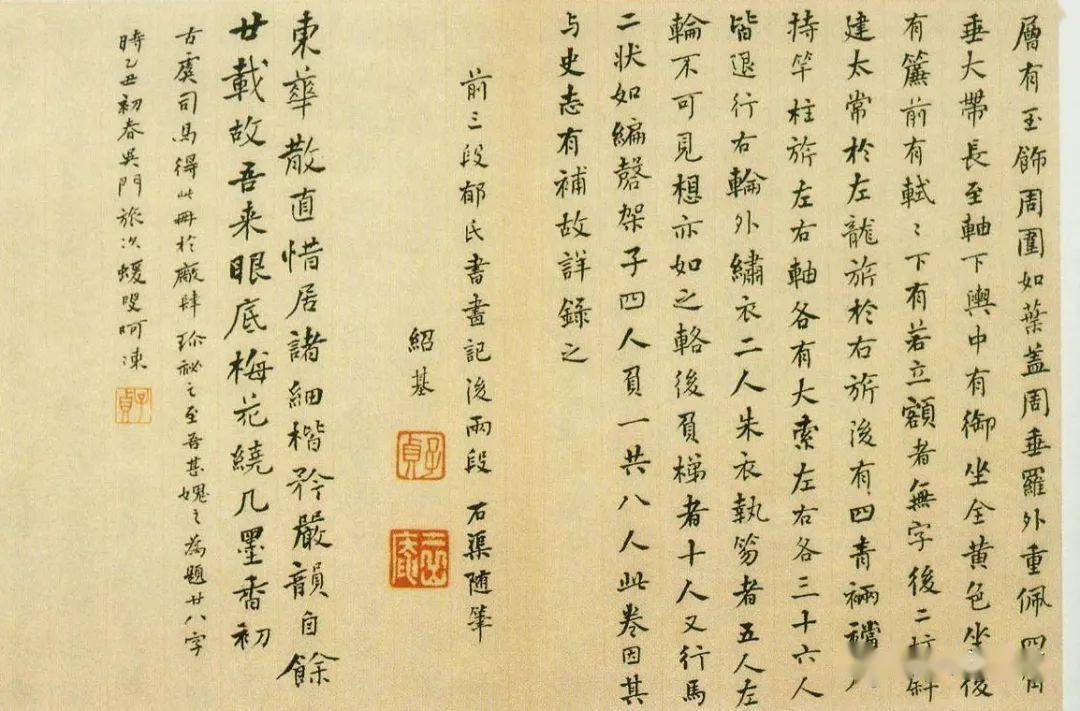 層有玉飾周圍如葉蓋周垂羅外重佩四
垂大帶長至軸下輿中有御坐全黄色坐後
有簾前有軾〻下有若立額者無字後二杠斜
建太常於左龍旂於右旂後有四青裲襠
持竿柱旂左右軸各有大索左右各三十六人
皆退行右輪外繡衣二人朱衣執笏者五人左
輪不可見想亦如之輅後負梯者十人又行馬
二状如編磬架子四人負一共八人此卷因其
与史志有補故詳録之
前三段郁氏書畫記後兩段石渠随筆
紹基
子貞
東華散直惜居諸細楷矜嚴韻自餘
廿載故吾来眼底梅花繞几墨香初
古虞司馬得此冊於廠肆珎祕之至吾甚媿之為題廿八字
時乙丑初春吳門旅次蝯叟呵凍
子貞